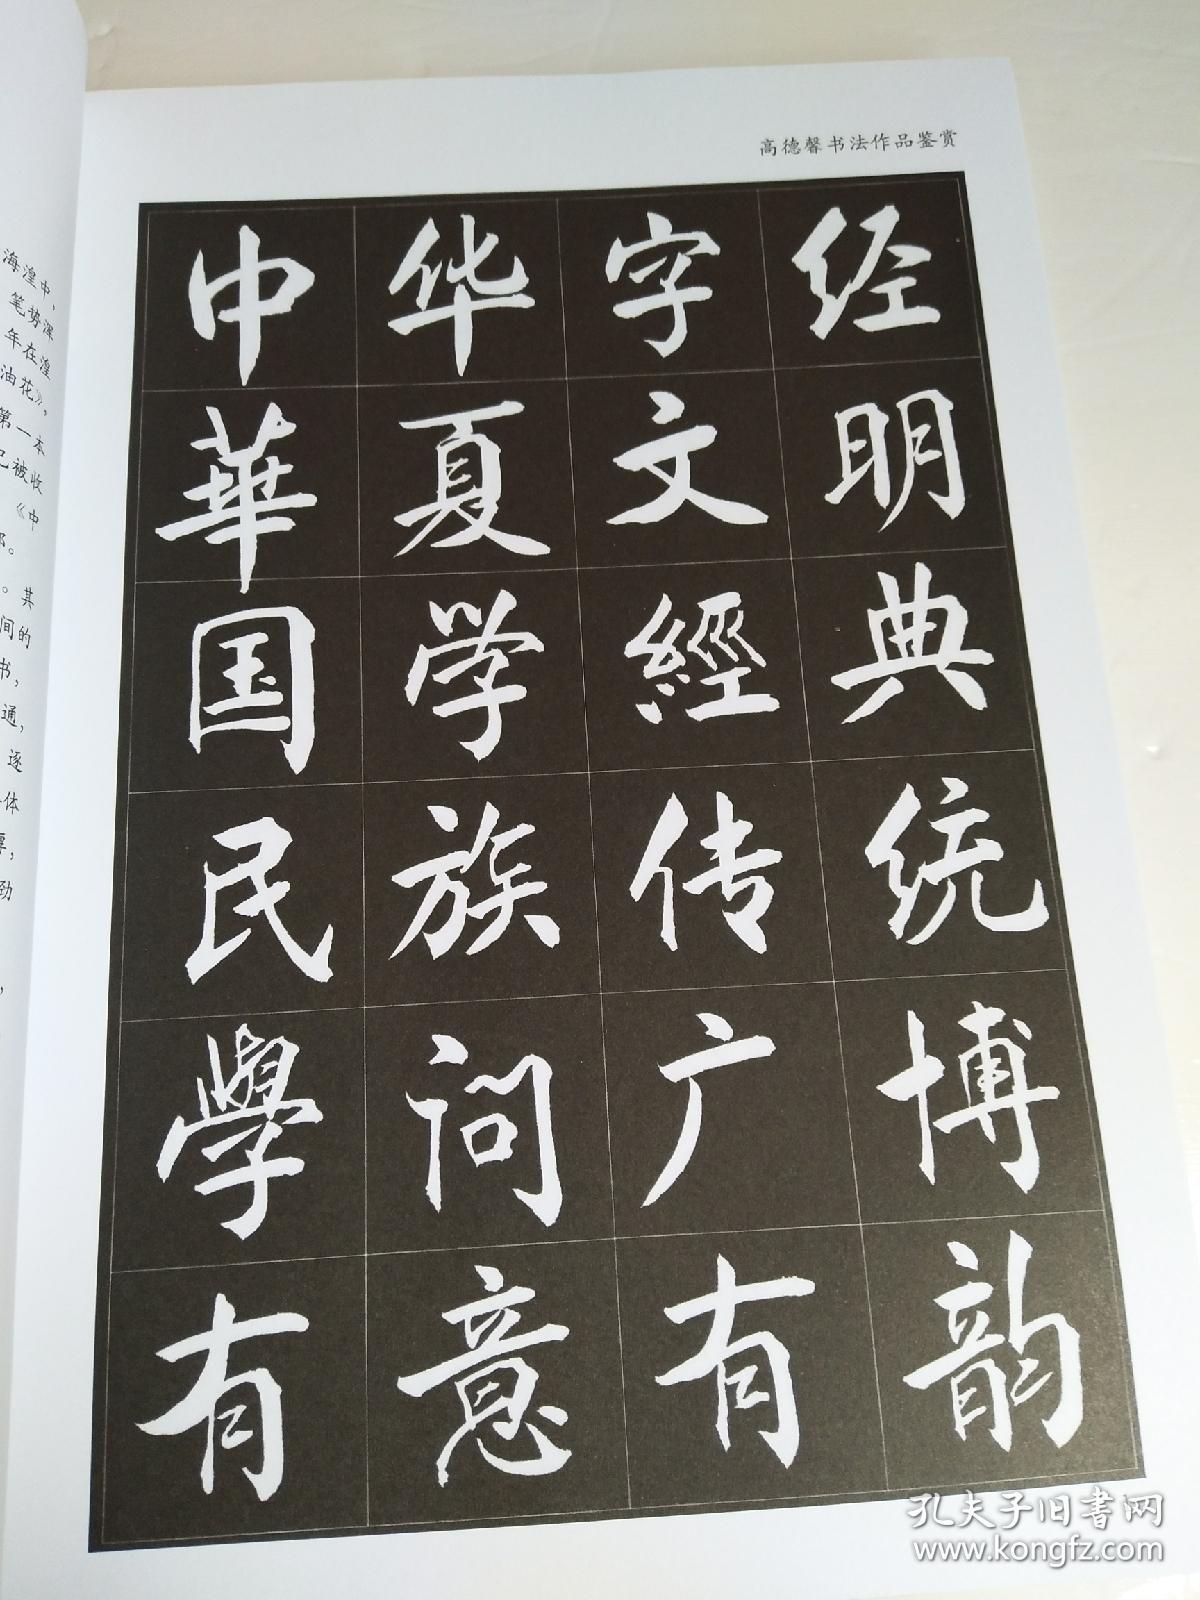 高德馨书法作品鉴赏
中华字经
華夏文明
国学經典
民族传统
學问广博
有意有韵
海湟中，
笔势深
年在湟
油花》，
第一本
已被收
《中
邓。
。其
间的
书，
通，
逐
体
厚，
劲
，
孔夫子旧書网
www.kongfz.com